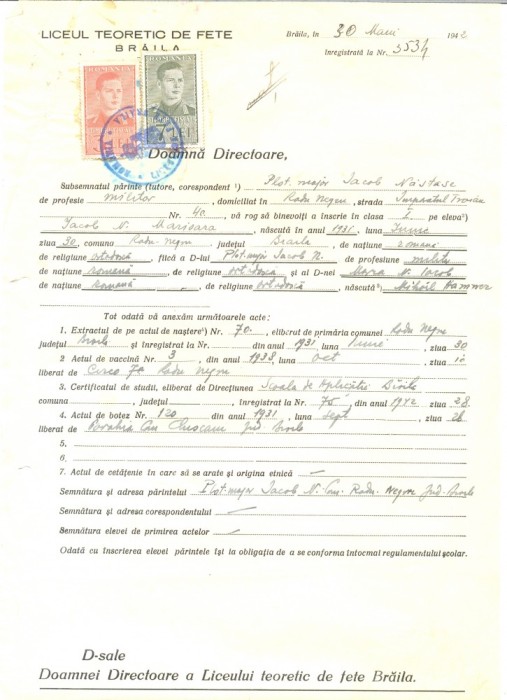 LICEUL TEORETIC DE FETE
BRĂILA
Brăila, în 30 1942
Inregistrată la Nr. 3534
ROMANIA ROMANIA
Doamnă Directoare,
Subsemnatul părinte (tutore, corespondent ¹) Plot. major Iacob Năstase
de profesie militar, domiciliat în Radu Negru, strada Împăratul Traian
Nr. 40, vă rog să binevoiți a inscrie în clasa I pe eleva²)
Iacob N. Marioara, născută în anul 1931, luna Iunie
ziua 30, comuna Radu Negru județul Braila, de națiune romană
de religiune ortodoxă, fiică a D-lui Plot. major Iacob N. de profesiune militar
de națiune romană, de religiune ortodoxă și al D-nei N. Iacob
de națiune romană, de religiune ortodoxă, născută³) Mihail
Tot odată vă anexăm următoarele acte:
1. Extractul de pe actul de naștere⁴) Nr. 70, eliberat de primăria comunei Radu Negru
județul Braila și înregistrat la Nr. din anul 1931, luna Iunie, ziua 30
2 Actul de vaccină Nr. 3, din anul 1938, luna Oct, ziua 10
liberat de Circ. Radu Negru
3. Certificatul de studii, eliberat de Direcțiunea Scoala de Aplicație Brăila
comuna, județul, inregistrat la Nr. 75, din anul 1942 ziua 28
4. Actul de botez Nr. 120 din anul 1931, luna Sept, ziua 28
liberat de Parohia Com. Chiscani Jud. Braila
5.
6.
7. Actul de cetățenie în care să se arate și origina etnică —
Semnătura și adresa părintelui Plot. major Iacob N. Com. Radu Negru Jud. Braila
Semnătura și adresa corespondentului —
Semnătura elevei de primirea actelor —
Odată cu inscrierea elevei părintele își la obligația de a se conforma întocmai regulamentului școlar.
D-sale
Doamnei Directoare a Liceului teoretic de fete Brăila.